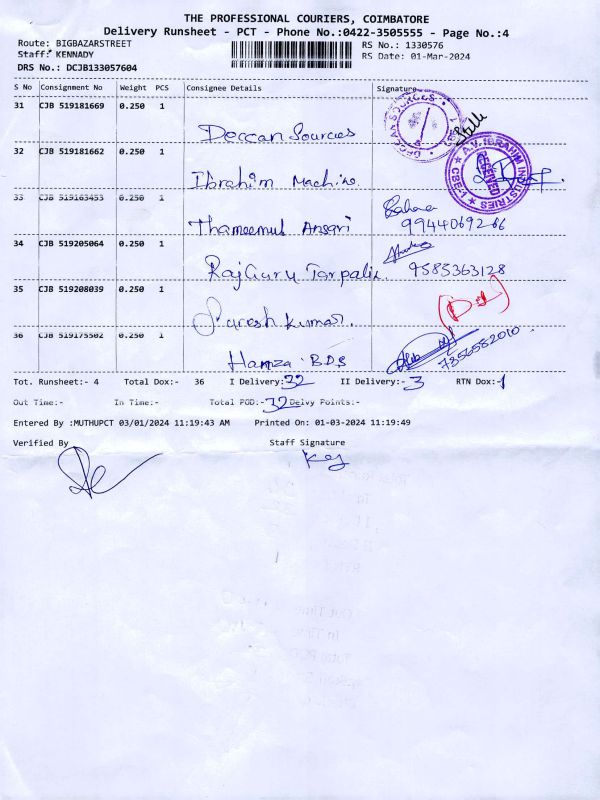 THE PROFESSIONAL COURIERS, COIMBATORE
Delivery Runsheet - PCT - Phone No.:0422-3505555 - Page No.:4
Route: BIGBAZARSTREET
RS No.: 1330576
Staff: KENNADY
RS Date: 01-Mar-2024
DRS No.: DCJB133057604
S No Consignment No Weight PCS Consignee Details Signature
31 CJB 519181669 0.250 1
Deccan Sources
DECCAN SOURCES
32 CJB 519181662 0.250 1
Ibrahim Machine.
A.V. IBRAHIM INDUSTRIES
RECEIVED
CBE-1
33 CJB 519163453 0.250 1
Thameemul Ansari
9944069266
34 CJB 519205064 0.250 1
RajGuru Tarpalin.
9585363128
35 CJB 519208039 0.250 1
Suresh Kumar.
36 CJB 519175502 0.250 1
Hamza. BDS
7356582010
Tot. Runsheet:- 4 Total Dox:- 36 I Delivery:32 II Delivery:- 3 RTN Dox:-1
Out Time:- In Time:- Total POD:-32 Delvy Points:-
Entered By :MUTHUPCT 03/01/2024 11:19:43 AM Printed On: 01-03-2024 11:19:49
Verified By Staff Signature